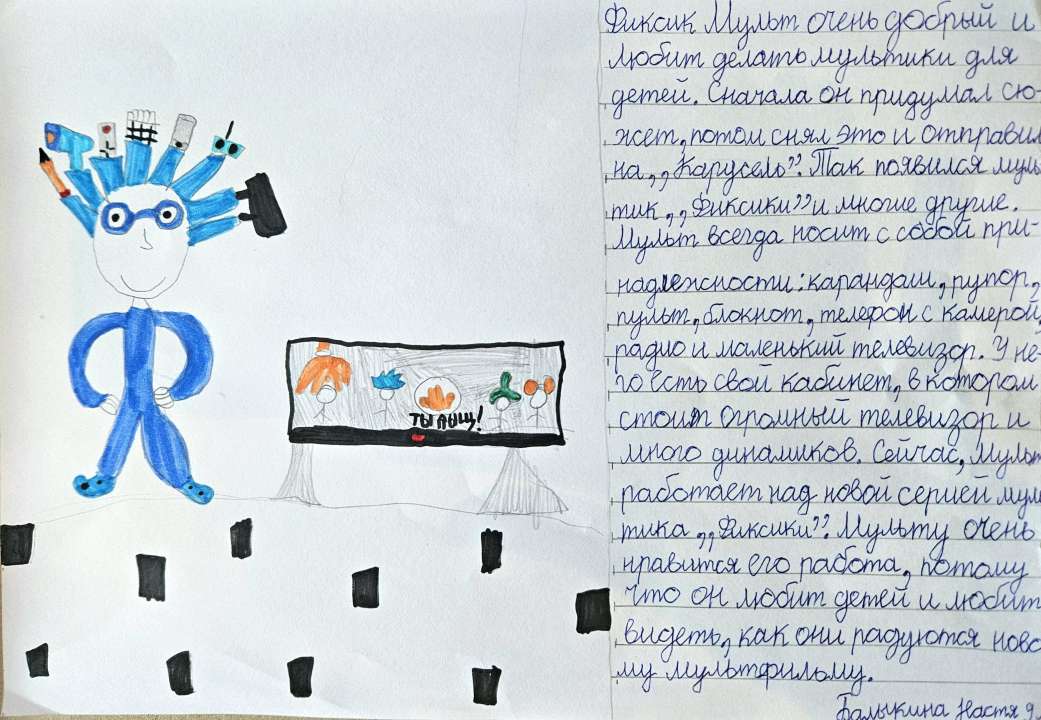 ТЫДЫЩ!
Фиксик Мульт очень добрый и
любит делать мультики для
детей. Сначала он придумал сю-
жет, потом снял это и отправил
на „Карусель”. Так появился муль
тик „Фиксики” и многие другие.
Мульт всегда носит с собой при-
надлежности: карандаш, рупор,
пульт, блокнот, телефон с камерой,
радио и маленький телевизор. У не-
го есть свой кабинет, в котором
стоит огромный телевизор и
много динамиков. Сейчас, Мульт
работает над новой серией мул
тика „Фиксики”. Мульту очень
нравится его работа, потому
что он любит детей и любит
видеть, как они радуются ново
му мультфильму.
Балыкина Настя 9